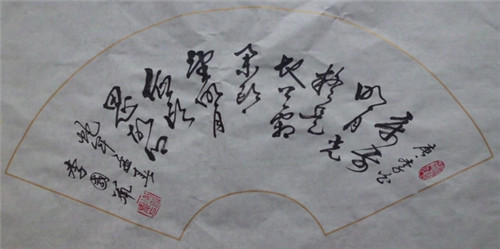 唐李白
床前
明月光
疑是
地上霜
举头
望明月
低头
思故乡
蛇年
李国